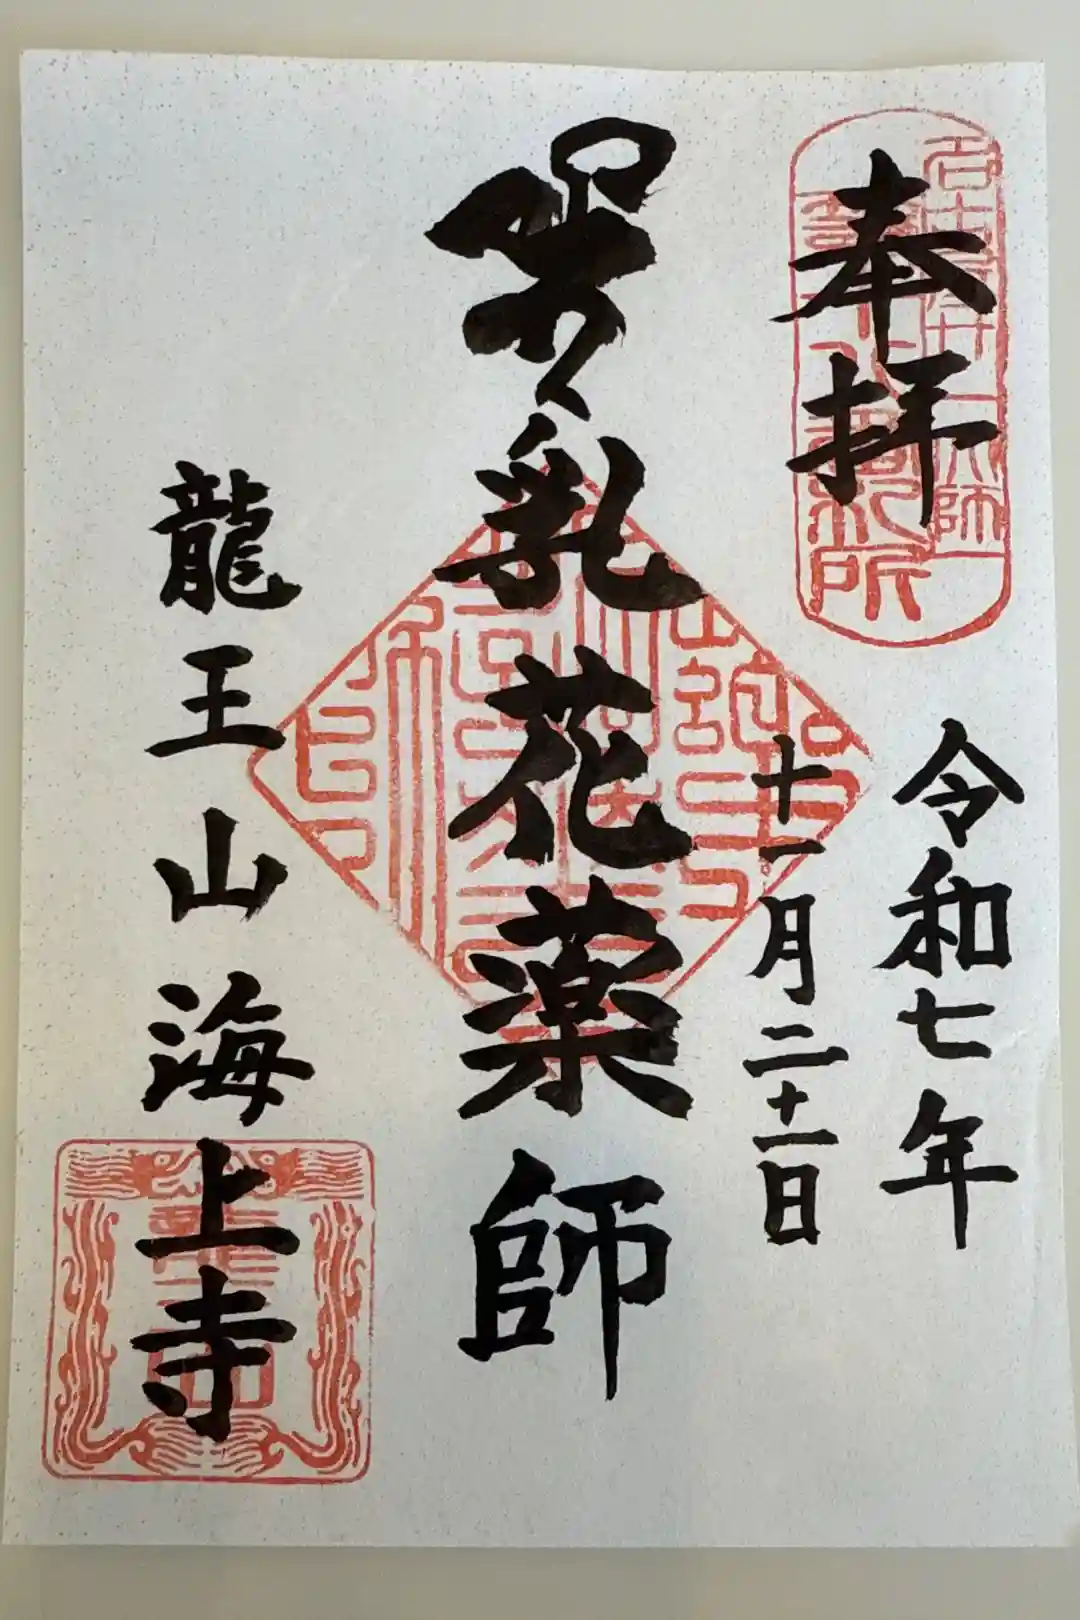 奉拝
令和七年
十一月二十一日
乳花薬師
龍王山海上寺